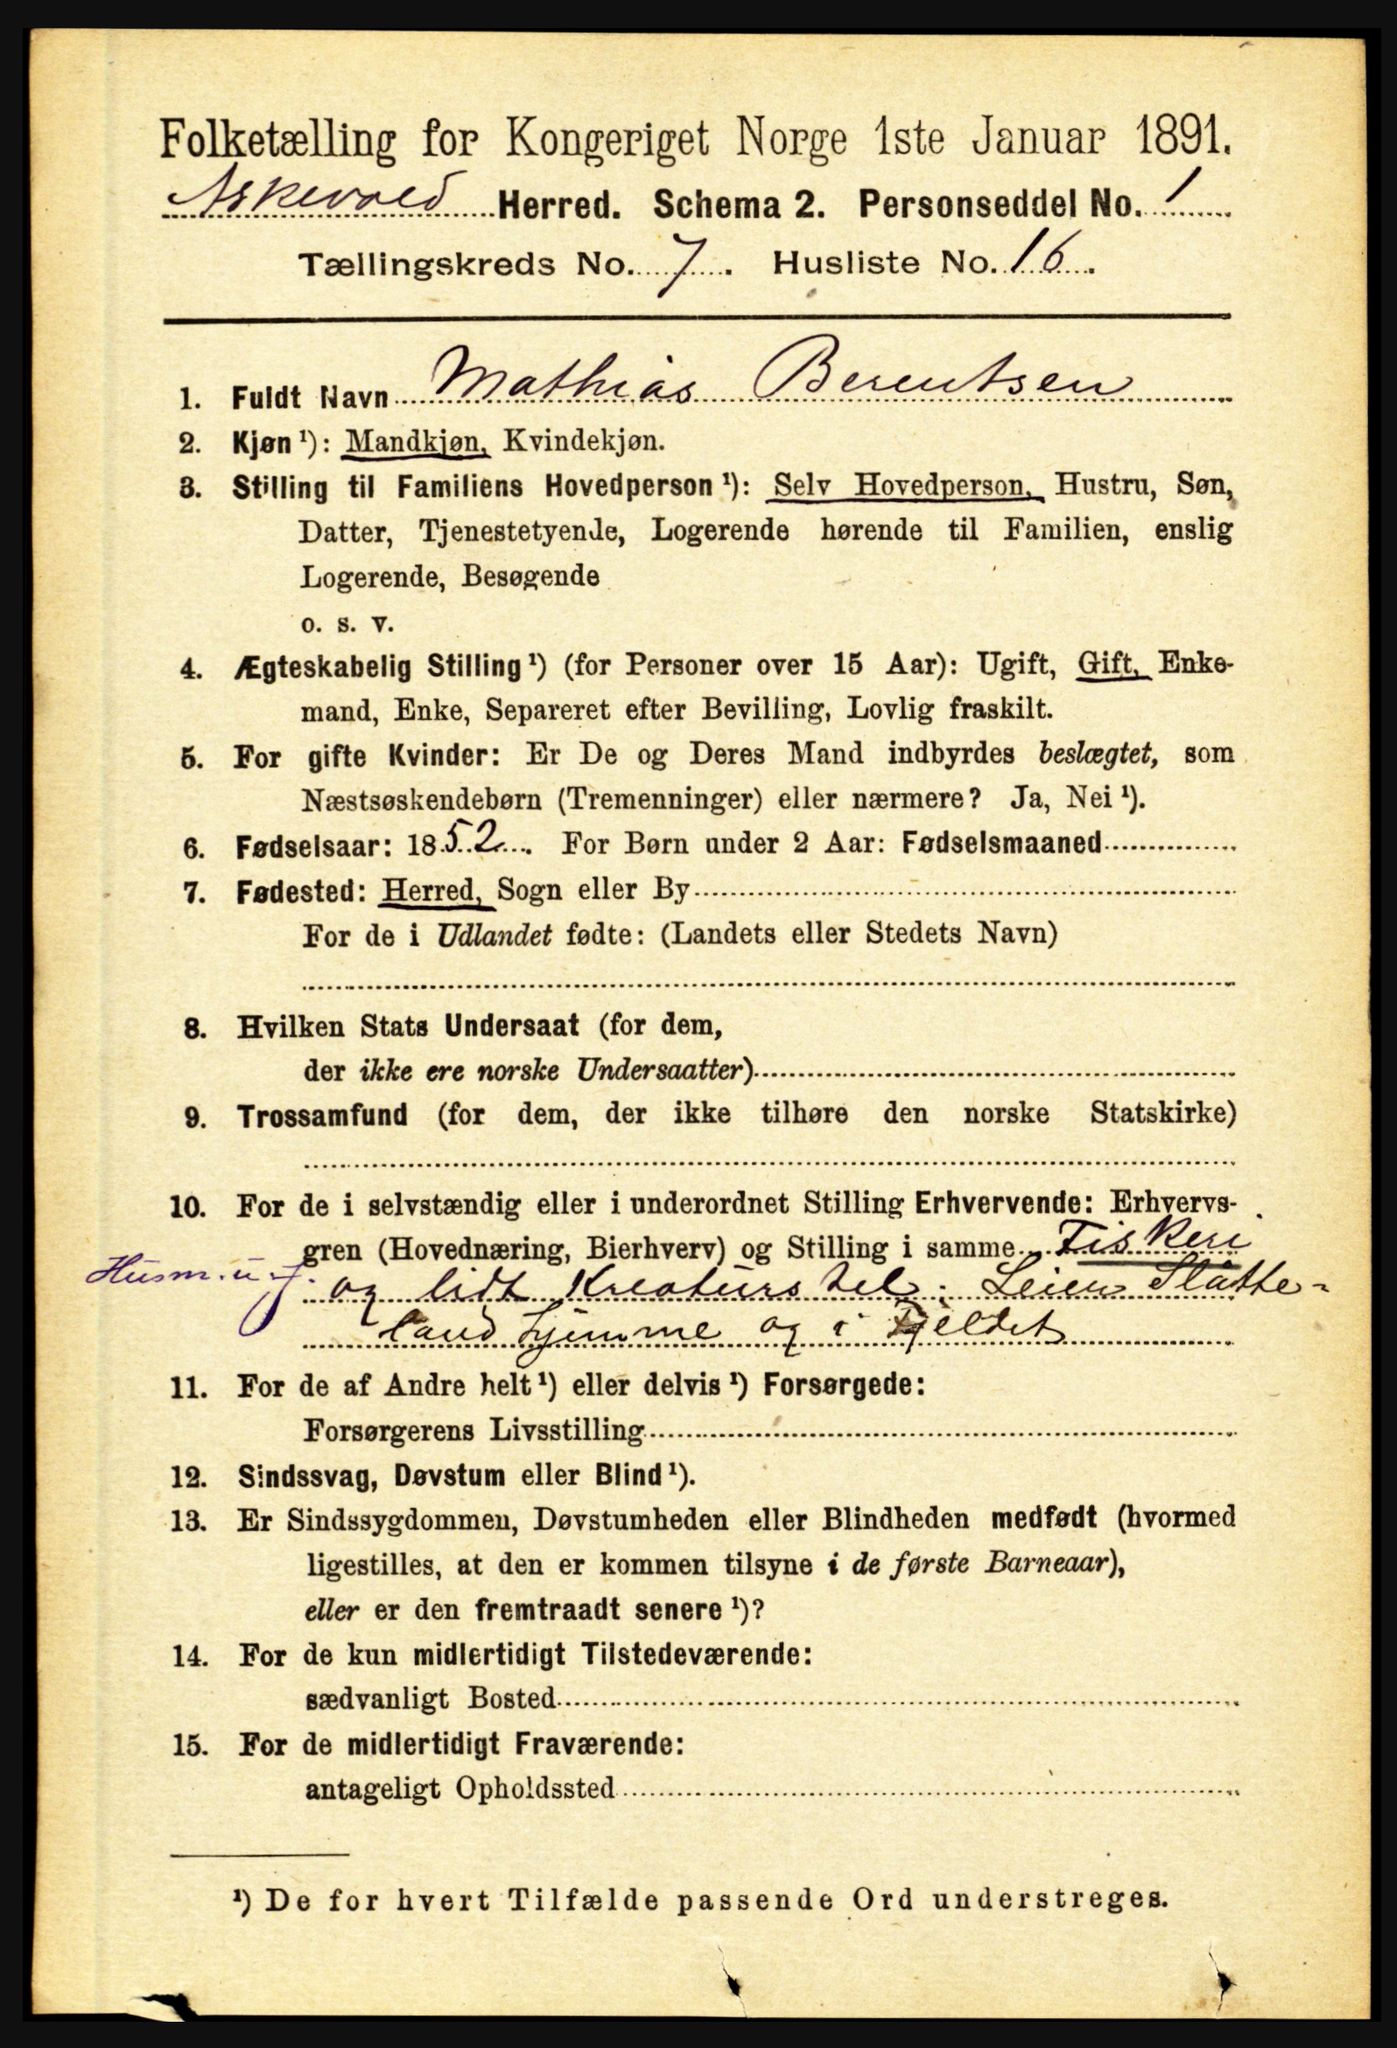 Folketælling for Kongeriget Norge 1ste Januar 1891.
Askevold Herred. Schema 2. Personseddel No. 1
Tællingskreds No. 7. Husliste No. 16.
1. Fuldt Navn Mathias Berentsen
2. Kjøn ¹): Mandkjøn, Kvindekjøn.
3. Stilling til Familiens Hovedperson ¹): Selv Hovedperson, Hustru, Søn,
Datter, Tjenestetyende, Logerende hørende til Familien, enslig
Logerende, Besøgende
o. s. v.
4. Ægteskabelig Stilling ¹) (for Personer over 15 Aar): Ugift, Gift, Enke-
mand, Enke, Separeret efter Bevilling, Lovlig fraskilt.
5. For gifte Kvinder: Er De og Deres Mand indbyrdes beslægtet, som
Næstsøskendebørn (Tremenninger) eller nærmere? Ja, Nei ¹).
6. Fødselsaar: 1852. For Børn under 2 Aar: Fødselsmaaned
7. Fødested: Herred, Sogn eller By
For de i Udlandet fødte: (Landets eller Stedets Navn)
8. Hvilken Stats Undersaat (for dem,
der ikke ere norske Undersaatter)
9. Trossamfund (for dem, der ikke tilhøre den norske Statskirke)
10. For de i selvstændig eller i underordnet Stilling Erhvervende: Erhvervs-
gren (Hovednæring, Bierhverv) og Stilling i samme Fiskeri
Husm. u. J. og lidt Kreaturstel. Leien Slåtte-
land hjemme og i Fjeldet
11. For de af Andre helt ¹) eller delvis ¹) Forsørgede:
Forsørgerens Livsstilling
12. Sindssvag, Døvstum eller Blind ¹).
13. Er Sindssygdommen, Døvstumheden eller Blindheden medfødt (hvormed
ligestilles, at den er kommen tilsyne i de første Barneaar),
eller er den fremtraadt senere ¹)?
14. For de kun midlertidigt Tilstedeværende:
sædvanligt Bosted
15. For de midlertidigt Fraværende:
antageligt Opholdssted
¹) De for hvert Tilfælde passende Ord understreges.